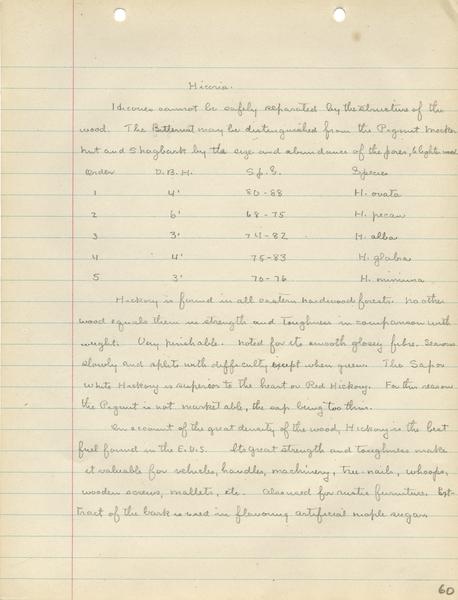 Hicoria.
Hicories cannot be safely separated by the structure of the
wood. The Bitternut may be distinguished from the Pignut Mocker
nut and Shagbark by the size and abundance of the pores, & lighter wood
Order D.B.H. Sp.G. Species
1 4' 80-88 H. ovata
2 6' 68-75 H. pecan
3 3' 74-82 H. alba
4 4' 75-83 H. glabra
5 3' 70-76 H. minima
Hickory is found in all eastern hardwood forests. No other
wood equals them in strength and toughness in comparison with
weight. Very perishable. Noted for its smooth glossy fibre. Seasons
slowly and splits with difficulty except when green. The Sap or
White Hickory is superior to the heart or Red Hickory. For this reason
the Pignut is not marketable, the sap being too thin.
On account of the great density of the wood, Hickory is the best
fuel found in the E.U.S. Its great strength and toughness make
it valuable for vehicles, handles, machinery, tree-nails, whoops,
wooden screws, mallets, etc. Also used for rustic furniture. Ext-
tract of the bark is used in flavouring artificial maple sugar.
60